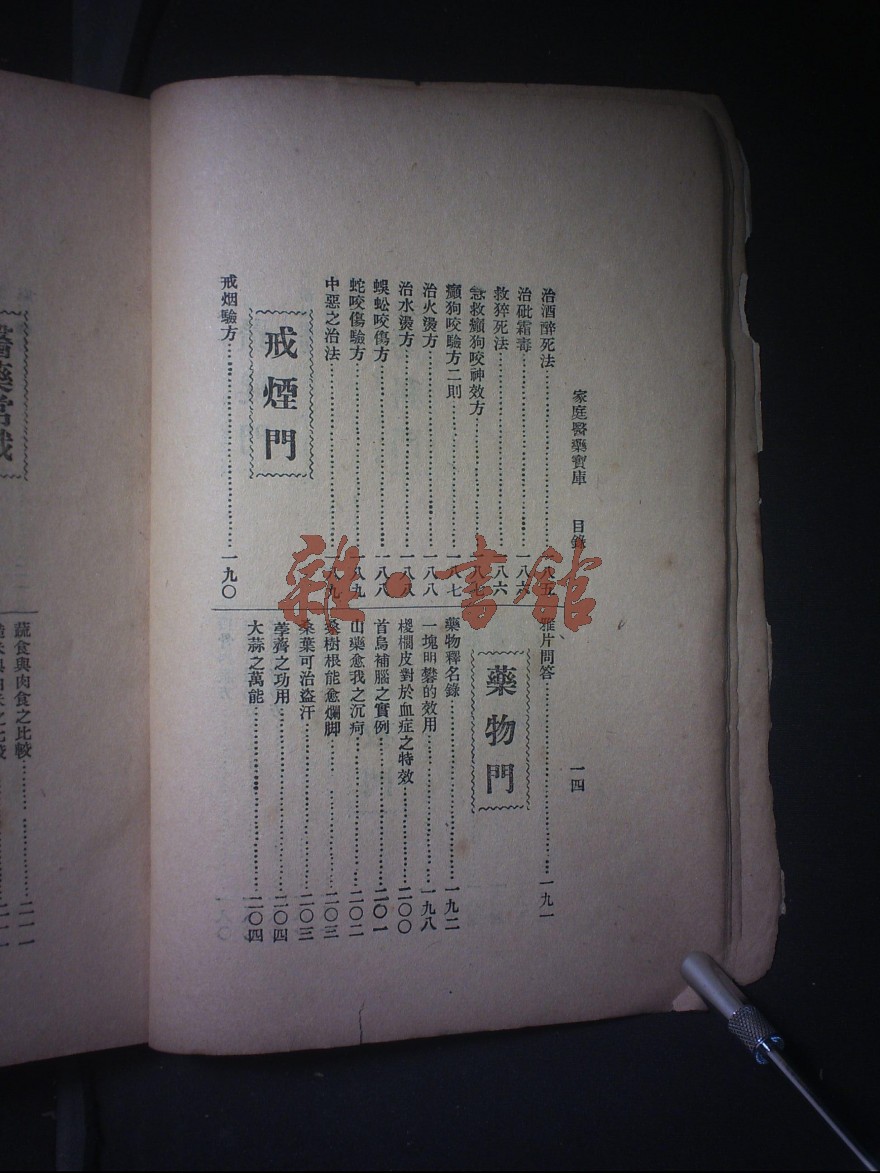 家庭醫藥寶庫 目錄 一四
治酒醉死法 一八五
治砒霜毒 一八六
救猝死法 一八六
急救癲狗咬神效方 一八七
癲狗咬驗方二則 一八七
治火燙方 一八八
治水燙方 一八八
蜈蚣咬傷方 一八八
蛇咬傷驗方 一八九
中惡之治法 一八九
戒煙門
戒烟驗方 一九〇
雅片問答 一九一
藥物門
藥物釋名錄 一九二
一塊明礬的效用 一九八
椶櫚皮對於血症之特效 二〇〇
首烏補腦之實例 二〇一
山藥愈我之沉疴 二〇二
桑樹根能愈爛脚 二〇三
桑葉可治盜汗 二〇三
荸薺之功用 二〇四
大蒜之萬能 二〇四
醫藥常識
蔬食與肉食之比較 二一一
雜·書館